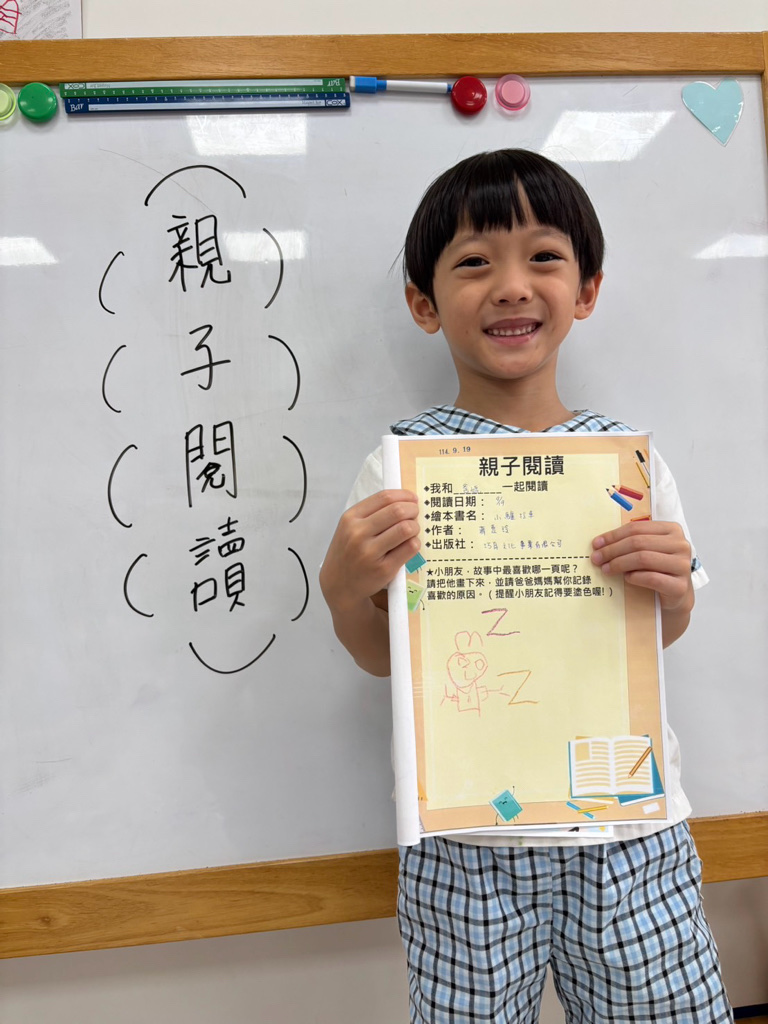 (親)
(子)
(閱)
(讀)
114. 9. 19
親子閱讀
◆我和______一起閱讀
◆閱讀日期：9/4
◆繪本書名：小
◆作者：
◆出版社：事業有限公司
★小朋友，故事中最喜歡哪一頁呢？
請把他畫下來，並請爸爸媽媽幫你記錄
喜歡的原因。(提醒小朋友記得要塗色喔!)
Z
Z